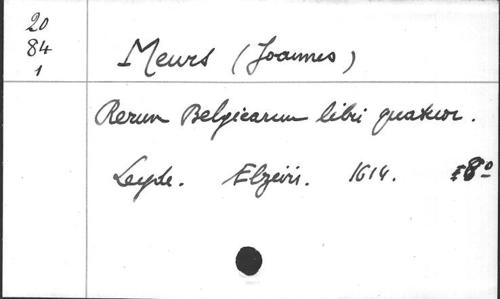 20
84
1
Meurs (Joannes)
Rerum Belgicarum libri quatuor.
Leyde. Elzevir. 1614. 8º